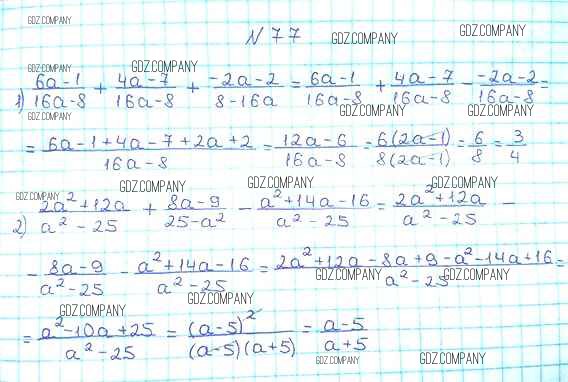 GDZ.COMPANY
N 77
GDZ.COMPANY GDZ.COMPANY
GDZ.COMPANY GDZ.COMPANY
1) (6a-1)/(16a-8) + (4a-7)/(16a-8) + (-2a-2)/(8-16a) = (6a-1)/(16a-8) + (4a-7)/(16a-8) - (-2a-2)/(16a-8) =
GDZ.COMPANY GDZ.COMPANY GDZ.COMPANY
= (6a-1+4a-7+2a+2)/(16a-8) = (12a-6)/(16a-8) = 6(2a-1)/8(2a-1) = 6/8 = 3/4
GDZ.COMPANY GDZ.COMPANY GDZ.COMPANY GDZ.COMPANY
2) (2a²+12a)/(a²-25) + (8a-9)/(25-a²) - (a²+14a-16)/(a²-25) = (2a²+12a)/(a²-25) -
- (8a-9)/(a²-25) - (a²+14a-16)/(a²-25) = (2a²+12a-8a+9-a²-14a+16)/(a²-25) =
GDZ.COMPANY GDZ.COMPANY
GDZ.COMPANY GDZ.COMPANY
= (a²-10a+25)/(a²-25) = (a-5)²/((a-5)(a+5)) = (a-5)/(a+5)
GDZ.COMPANY GDZ.COMPANY